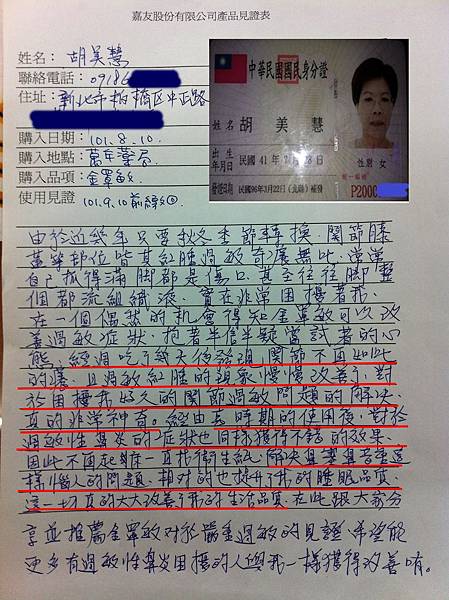 嘉友股份有限公司產品見證表
姓名：胡美慧
聯絡電話：0918
住址：新北市板橋區中正路
購入日期：101.8.10.
購入地點：萬年藥局
購入品項：金罩敏
使用見證 101.9.10
中華民國國民身分證
姓名 胡 美 慧
出生年月日 民國41年 月 8日
性別 女
發證日期 民國96年3月22日(北縣)補發
統一編號
P2000
由於近幾年只要秋冬季節轉換，關節膝
蓋等部位皆其紅腫過敏奇癢無比，常常
自己抓得滿腳都是傷口，甚至往往腳整
個都流組織液，實在非常困擾著我，
在一個偶然的機會得知金罩敏可以改
善過敏症狀，抱著半信半疑嘗試著的心
態，經過吃了幾天後發現，關節不再如此
的癢，且過敏紅腫的現象慢慢改善了，對
於困擾我好久的關節過敏問題的解決，
真的非常神奇。經由長時期的使用後，對於
過敏性鼻炎的症狀也同樣獲得不錯的效果，
因此不再起床一直找衛生紙，解決鼻塞鼻音重這
樣惱人的問題，相對的也提升了我的睡眠品質，
這一切真的大大改善了我的生活品質，在此跟大家分
享並推薦金罩敏對於嚴重過敏的見證，希望能
更多有過敏性鼻炎困擾的人與我一樣獲得改善唷。